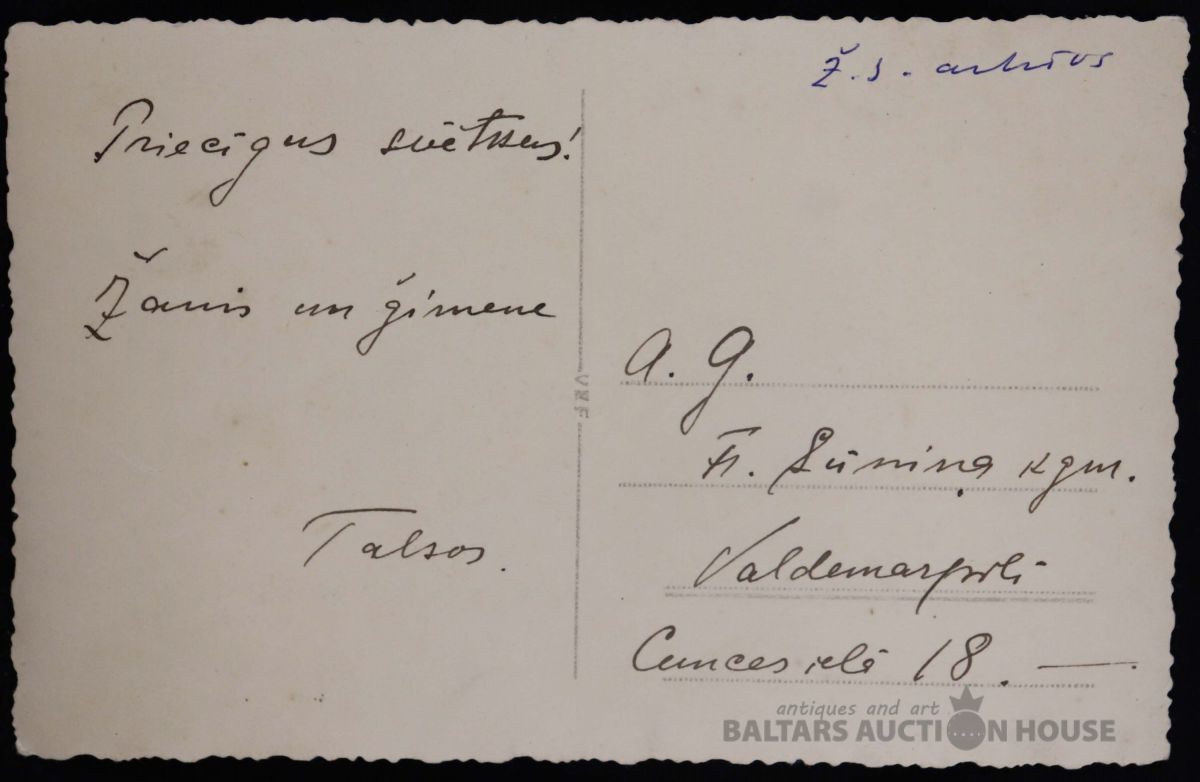 Priecīgus svētkus!
Žanis un ģimene
Talsos.
Ž. S. arhīvs
VEF
A. G.
Fr. Sūniņa kgm.
Valdemarpilī
ielā 18. —
antiques and art
BALTARS AUCTION HOUSE